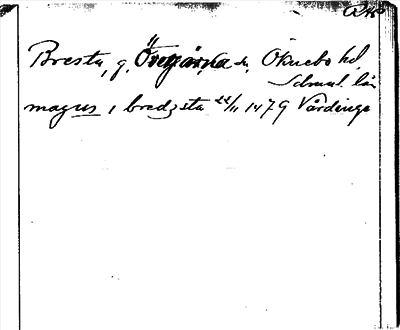 Bresta, g. Överjärna sn, Öknebo hd,
Sthml. län
magus i bredzsta 22/11 1479 Vårdinge